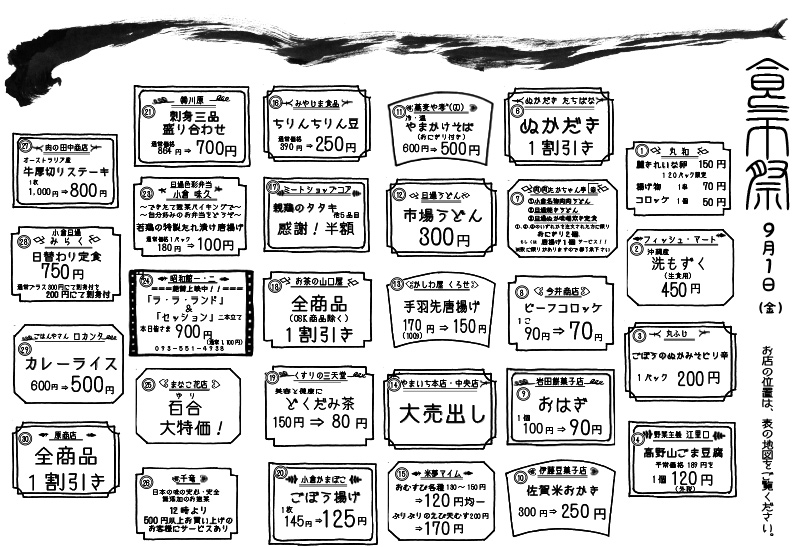 食市祭
9月1日
(金)
お店の位置は、表の地図をご覧ください。
① 丸和
麗きれいな卵 150円
120パック限定
揚げ物 1串 70円
コロッケ 1個 50円
② フィッシュ・アート
沖縄産
洗もずく
(生食用)
450円
③ 丸ふじ
ごぼうのぬかみそピリ辛
1パック 200円
④ 野菜主義 江里口
高野山ごま豆腐
平常価格 189円を
1個 120円
(外税)
⑥ ぬかだき たちばな
ぬかだき
1割引き
⑦
おにぎり2個、
もしくは 唐揚げ1個サービス!!
⑧ 今井商店
ビーフコロッケ
1コ
90円⇒70円
⑨ 岩田餅菓子店
おはぎ
1個
100円⇒90円
⑩ 伊藤豆菓子店
佐賀米おかき
300円⇒250円
⑪
冷・温
やまかけそば
(おにぎり付き)
600円⇒500円
⑫ 旦過うどん
市場うどん
300円
⑬ かしわ屋 くろせ
手羽先唐揚げ
170円⇒150円
(100g)
⑭ やまいち本店・中央店
大売出し
⑮ 米夢マイム
おむすび各種130〜150円
⇒120円均一
ぷりぷりのえび天むす200円
⇒170円
⑯ みやじま食品
ちりんちりん豆
通常価格
390円⇒250円
⑰ ミートショップコア
親鶏のタタキ
他5品目
感謝!半額
⑱ お茶の山口屋
全商品
(OSK商品除く)
1割引き
⑲ くすりの三天堂
美容と健康に
どくだみ茶
150円⇒80円
⑳ 小倉かまぼこ
ごぼう揚げ
1枚
145円⇒125円
㉑ 韓川原
刺身三品
盛り合わせ
通常価格
864円⇒700円
㉓ 旦過色彩弁当
小倉 味久
〜できたて惣菜バイキングで〜
〜自分好みのお弁当をどうぞ〜
若鶏の特製たれ漬け唐揚げ
通常価格1パック
180円⇒100円
㉔ 昭和館一・二
===絶賛上映中!!===
「ラ・ラ・ランド」
&
「セッション」二本立て
本日皆さま 900円
(通常1,100円)
093-551-4938
㉕ まなこ花店
ゆり
百合
大特価!
㉖ 千竜
日本の味の安心・安全
無添加のお惣菜
12時より
500円以上お買い上げの
お客様にサービスあり
㉗ 肉の田中商店
オーストラリア産
牛厚切りステーキ
1枚
1,000円⇒800円
㉘ 小倉旦過
みらく
日替わり定食
750円
通常プラス300円にて刺身付を
200円にて刺身付
㉙ ごはんやさん ロカンタ
カレーライス
600円⇒500円
㉚ 原商店
全商品
1割引き